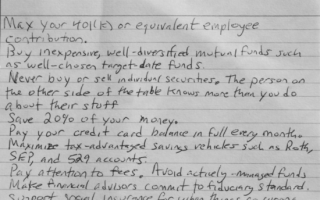 Max your 401(k) or equivalent employee
contribution.
Buy inexpensive, well-diversified mutual funds such
as well-chosen target date funds.
Never buy or sell individual securities. The person on
the other side of the table knows more than you do
about their stuff
Save 20% of your money.
Pay your credit card balance in full every month.
Maximize tax-advantaged savings vehicles such as Roth,
SEP, and 529 accounts.
Pay attention to fees. Avoid actively-managed funds
Make financial advisors commit to fiduciary standard.
Support social insurance for when things go wrong